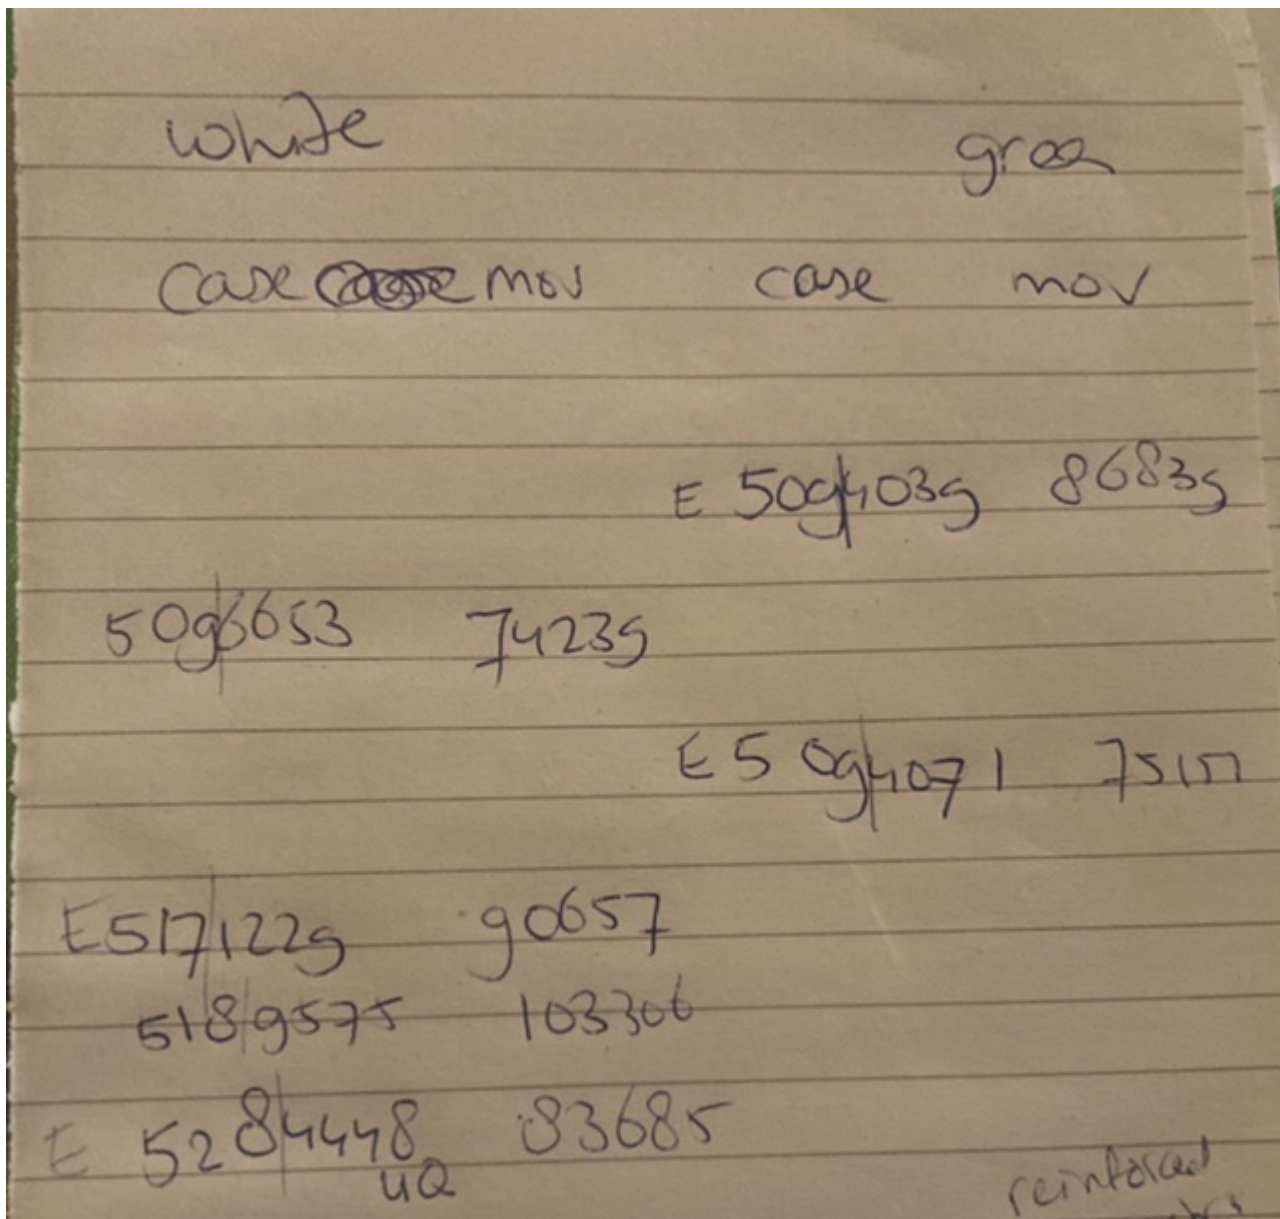 white green
case mov case mov
E 509|4039 86839
509|6653 74239
E 509|4071
E517|1229 90657
518|9575 103306
E 528|4448 83685
reinforced